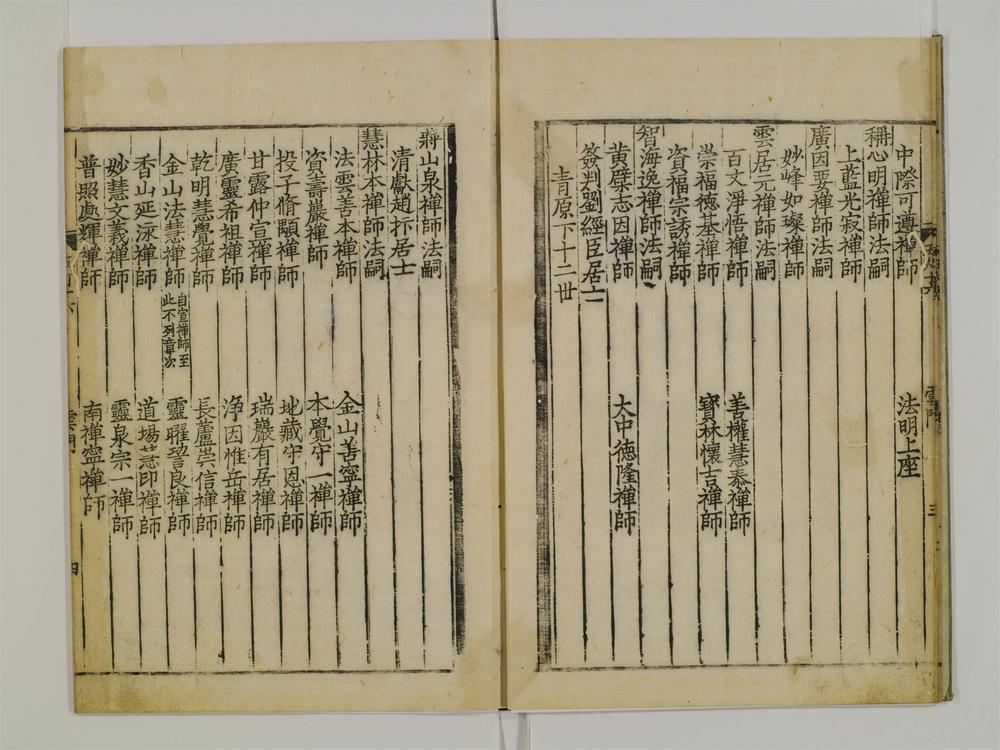 中際可遵禪師　法明上座
稱心明禪師法嗣
上藍光寂禪師
廣因要禪師法嗣
妙峰如璨禪師
雲居元禪師法嗣
百丈淨悟禪師　善權慧泰禪師
崇福德基禪師　寶林懷吉禪師
資福宗誘禪師
智海逸禪師法嗣
黃檗志因禪師　大中德隆禪師
簽判劉經臣居士
青原下十二世
蔣山泉禪師法嗣
清獻趙抃居士
慧林本禪師法嗣
法雲善本禪師　金山善寧禪師
資壽巖禪師　本覺守一禪師
投子脩顒禪師　地藏守恩禪師
甘露仲宣禪師　瑞巖有居禪師
廣靈希祖禪師　淨因惟岳禪師
乾明慧覺禪師　長蘆崇信禪師
金山法慧禪師　自宣禪師至此不列章次　靈曜䛒良禪師
香山延泳禪師　道場慧印禪師
妙慧文義禪師　靈泉宗一禪師
普照處輝禪師　南禪寧禪師
雲門
三
四